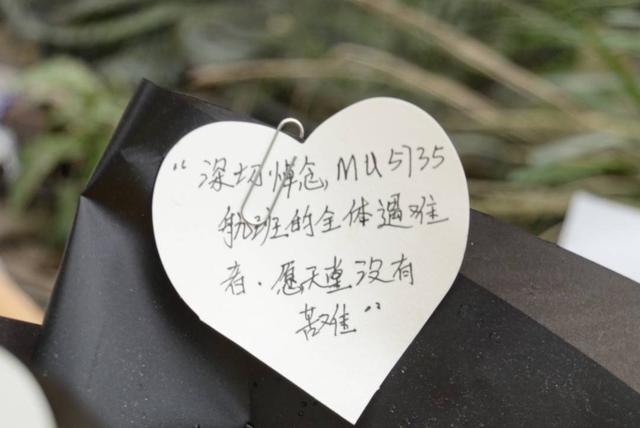 “深切悼念MU5735
航班的全体遇难
者.愿天堂没有
苦难”